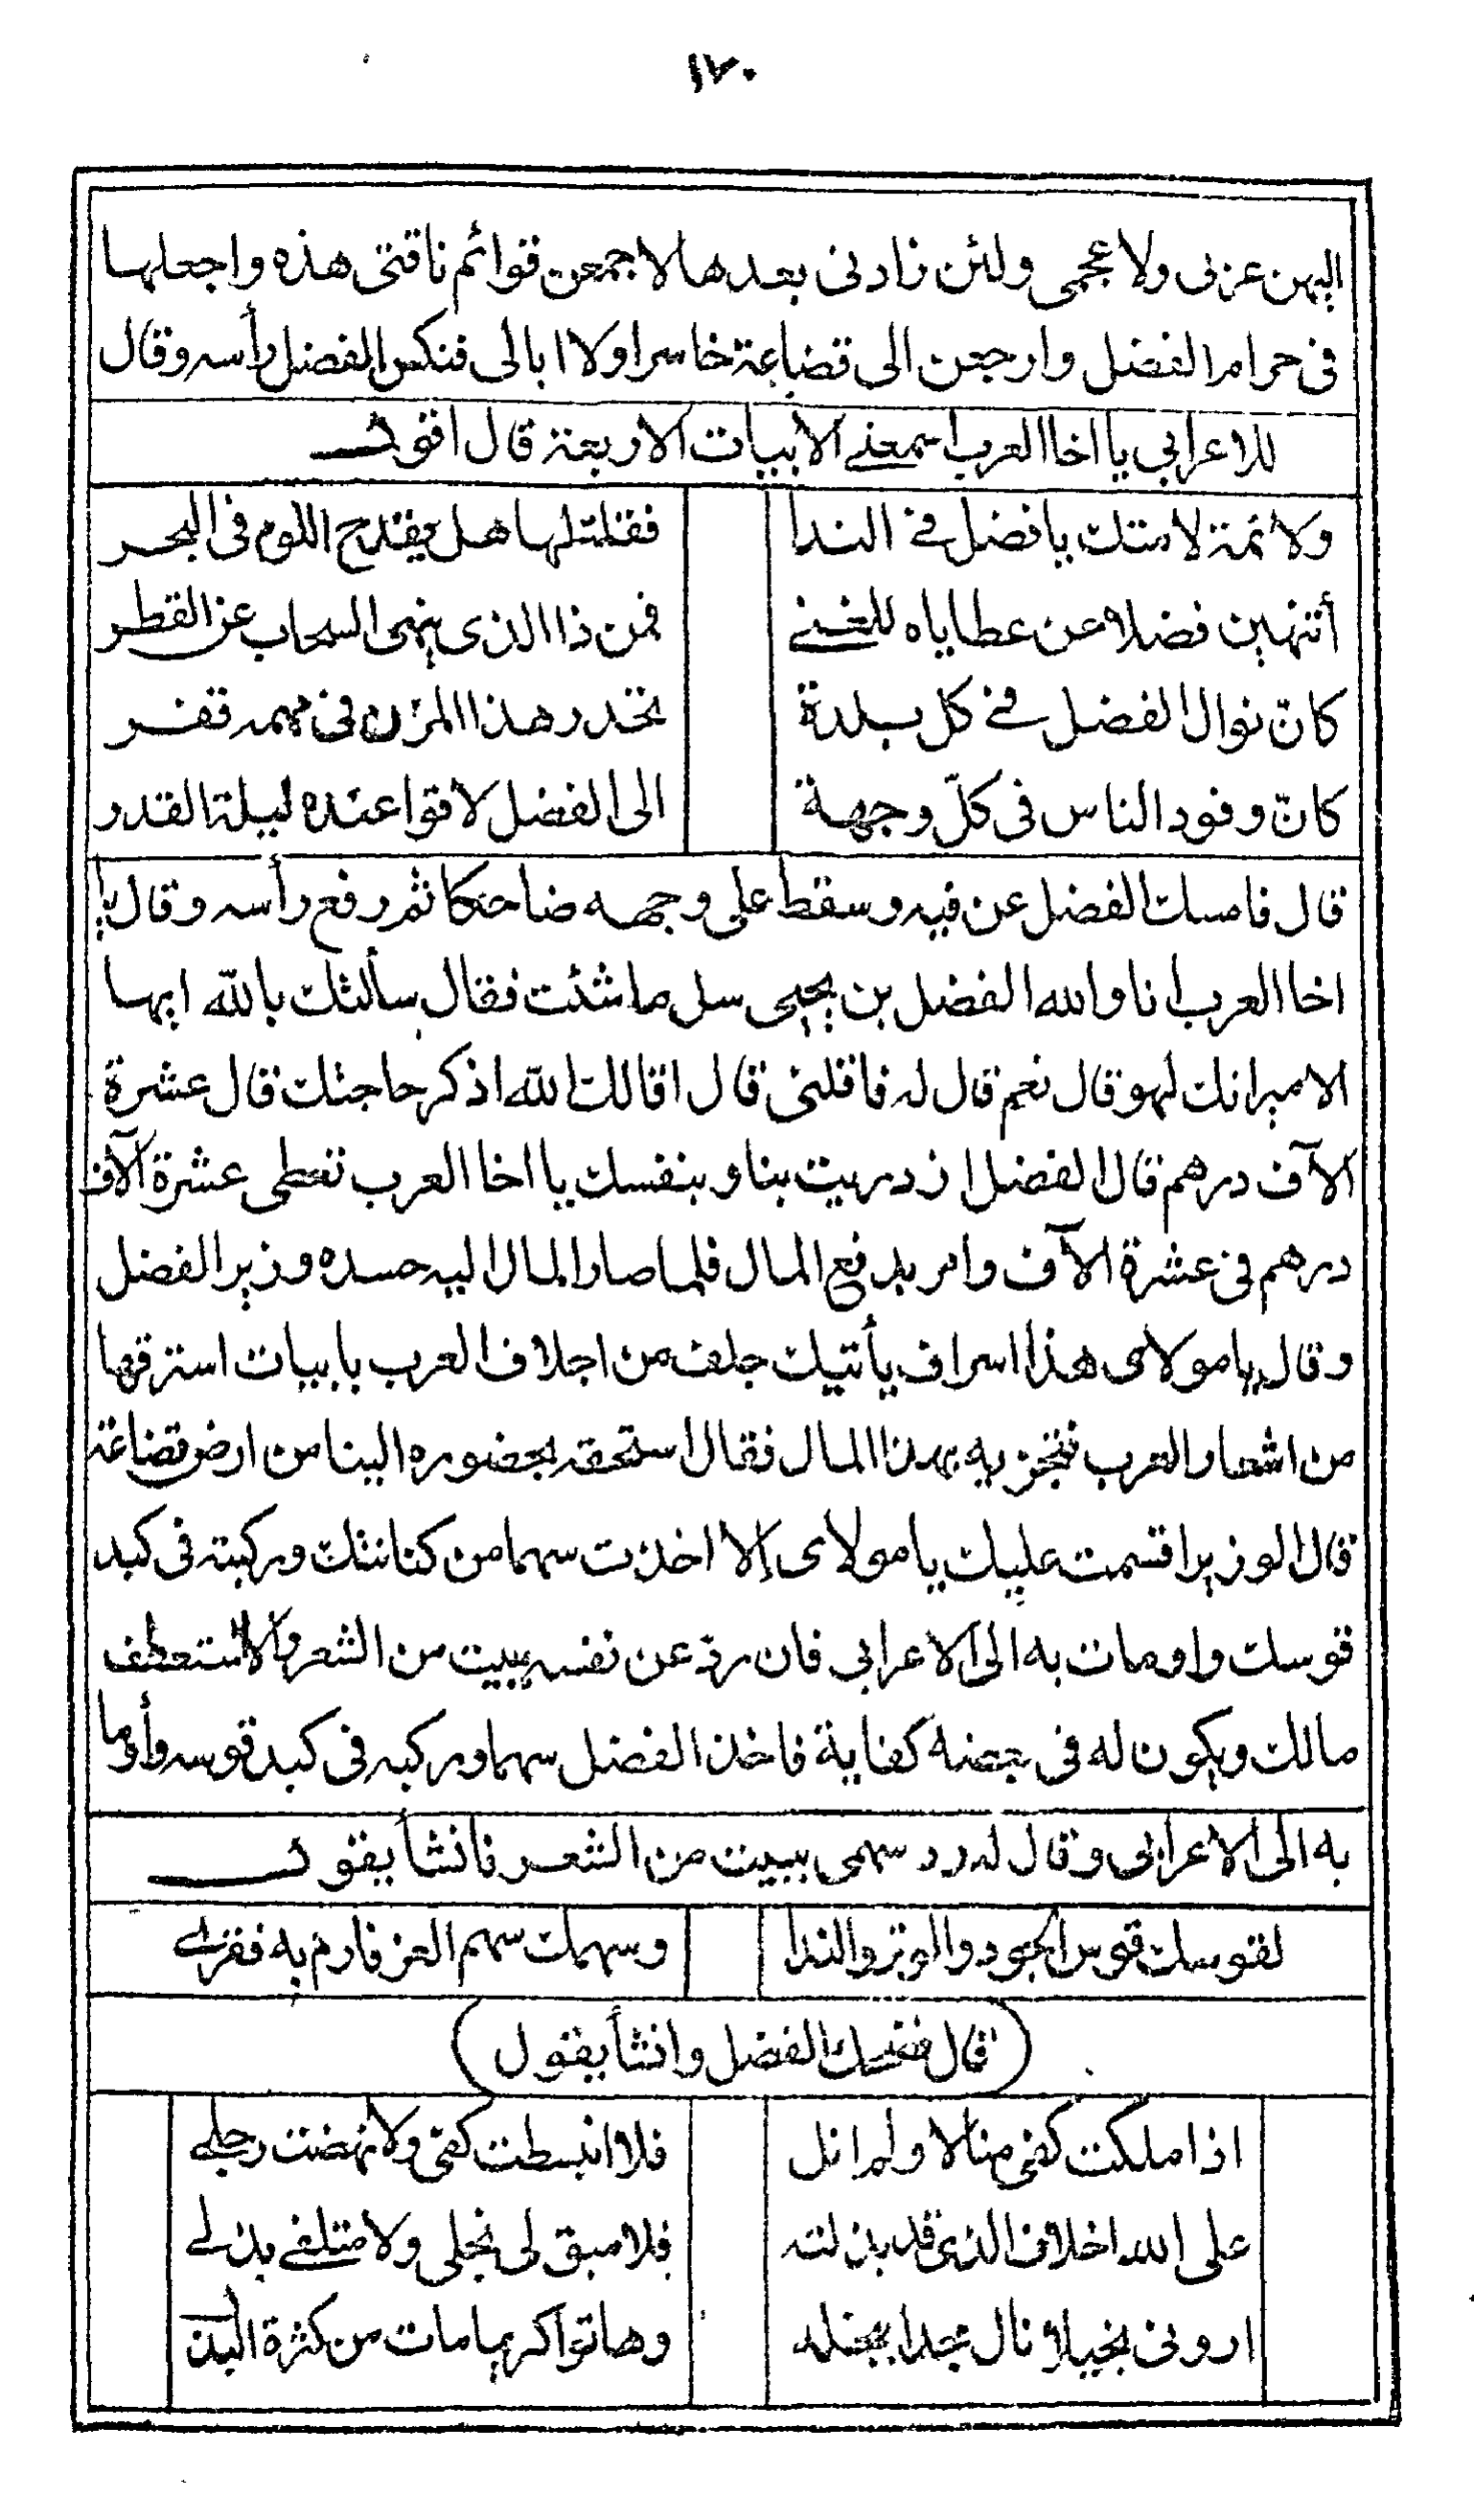 ١٧٠
اليهن عربى ولا عجمى ولئن زادنى بعدها لاجمعن قوائم ناقتى هذه واجعلها
فى حرام الفضل وارجعن الى قضاعة خاسرا ولا ابالى فنكس الفضل رأسه وقال
للاعرابي يا اخا العرب اسمعنى الابيات الاربعة قال اقول
ولائمة لامتك يا فضل فى الندا فقلت لها هل يقدح اللوم فى البحر
أتنهين فضلا عن عطاياه للغنى فمن ذا الذى ينهى السحاب عن القطر
كانّ نوال الفضل فى كل بلدة تحدر هذا المزن فى مهمه قفر
كانّ وفود الناس فى كلّ وجهة الى الفضل لاقوا عنده ليلة القدر
قال فامسك الفضل عن فيه وسقط على وجهه ضاحكا ثم رفع رأسه وقال يا
اخا العرب انا والله الفضل بن يحيى سل ما شئت فقال سألتك بالله ايها
الامير انك لهو قال نعم قال له فاقلنى قال اقالك الله اذكر حاجتك قال عشرة
الآف درهم قال الفضل ازدريت بنا وبنفسك يا اخا العرب تعطى عشرة الآف
درهم فى عشرة الآف وامر بدفع المال فلما صار المال اليه حسده وزير الفضل
وقال يا مولاى هذا اسراف يأتيك جلف من اجلاف العرب بابيات استرقها
من اشعار العرب فتجزيه بهذا المال فقال استحقه بحضوره الينا من ارض قضاعة
قال الوزير اقسمت عليك يا مولاى إلا اخذت سهما من كنانتك وركبته فى كبد
قوسك واومات به الى الاعرابي فان ردّ عن نفسه ببيت من الشعر والا استعطف
مالك ويكون له فى بعضه كفاية فاخذ الفضل سهما وركبه فى كبد قوسه وأوما
به الى الاعرابى وقال له رد سهمى ببيت من الشعر فانشأ يقول
لقوسك قوس الجود والوتر والندا وسهمك سهم العز فارم به فقرى
(قال فضحك الفضل وانشأ يقول)
اذا ملكت كفى منالا ولم انل فلا انبسطت كفى ولا نهضت رجلى
على الله اخلاف الذى قد بذلته فلا مبق لى بخلى ولا متلفى بذلى
ارونى بخيلا نال مجدا ببخله وهاتوا كريما مات من كثرة البذل